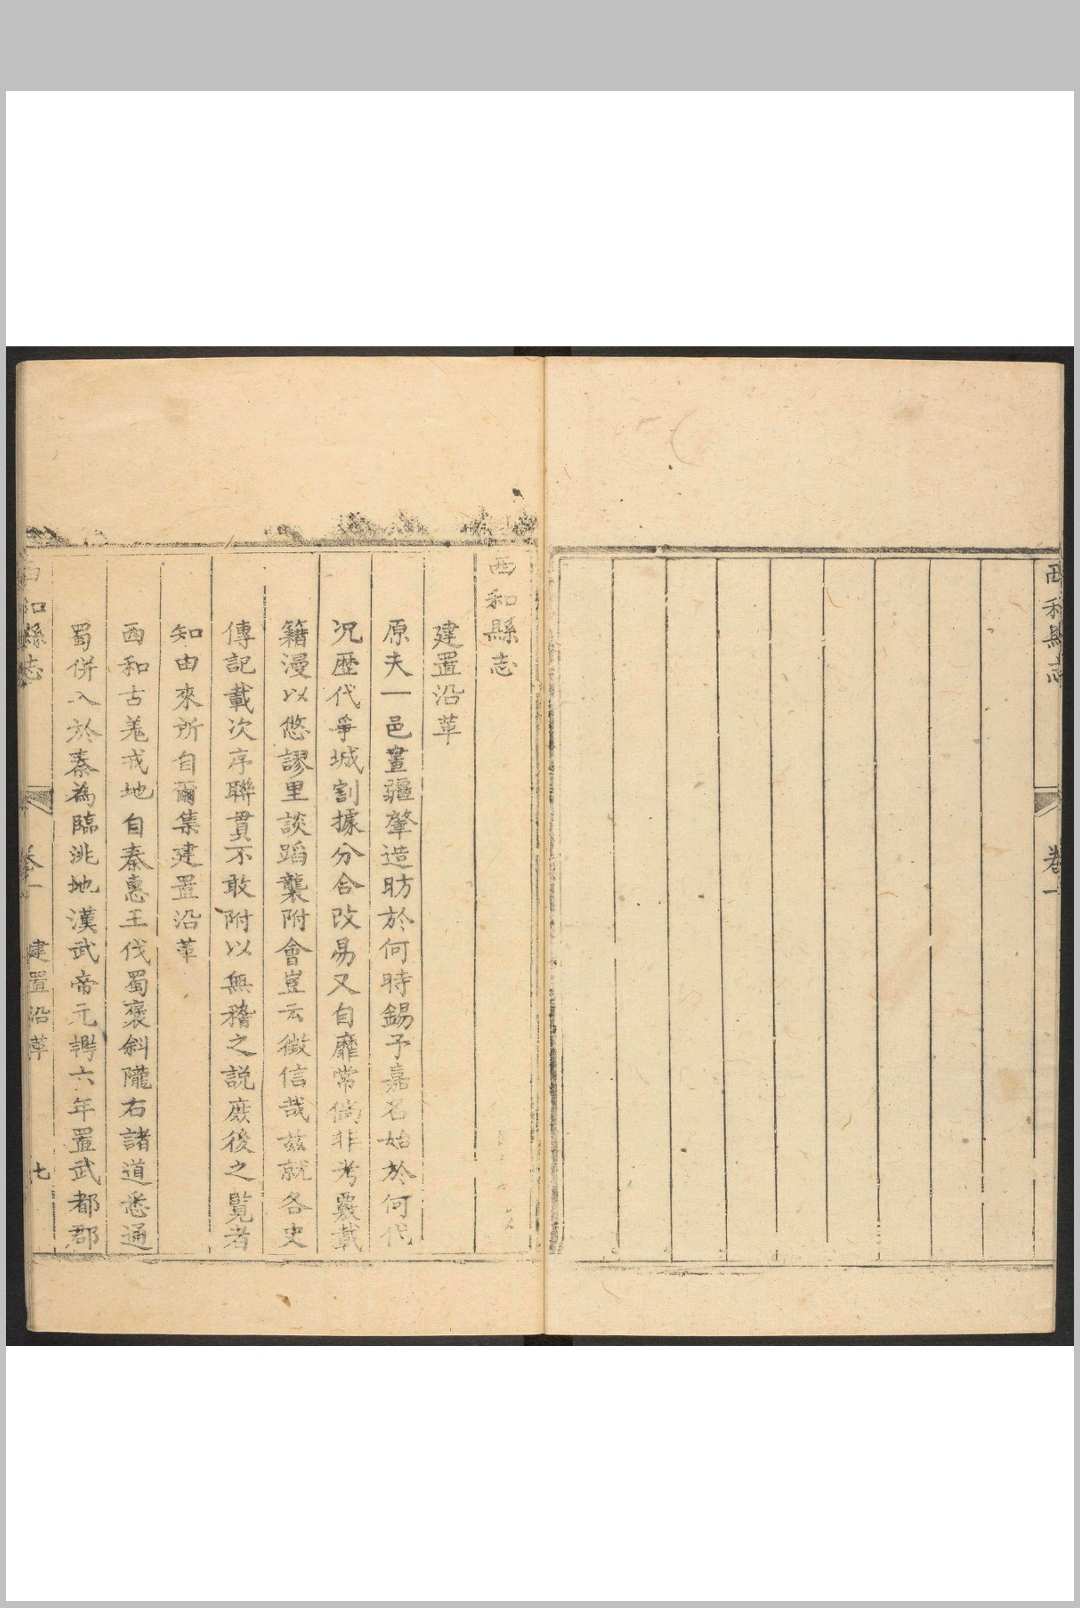 西和縣志
卷一
西和縣志
建置沿革
原夫一邑畫疆肇造昉於何時錫予嘉名始於何代
況歷代爭城割據分合改易又自靡常倘非考覈載
籍漫以悠謬里談蹈襲附會豈云徵信哉茲就各史
傳記載次序聯貫不敢附以無稽之説庶後之覧者
知由來所自爾集建置沿革
西和古羗戎地自秦惠王伐蜀褒斜隴右諸道悉通
蜀併入於秦為臨洮地漢武帝元鼎六年置武都郡
西和縣志
卷一
建置沿革
七